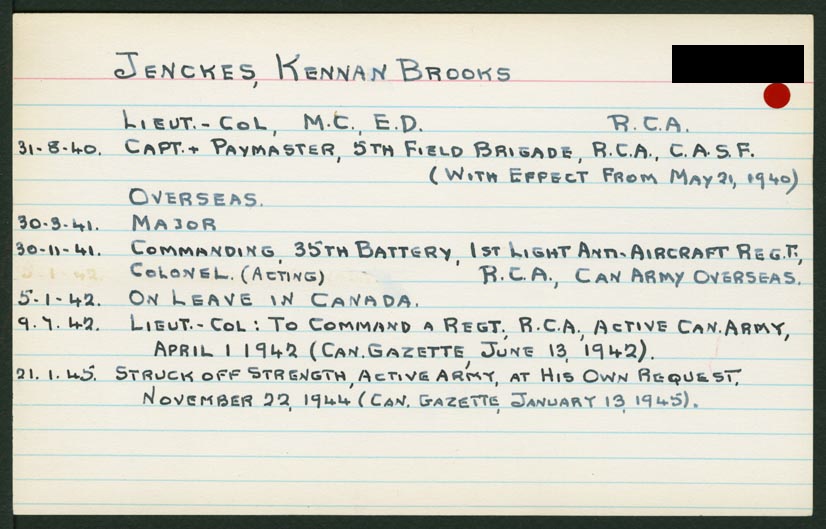 JENCKES, KENNAN BROOKS
LIEUT.-COL, M.C., E.D. R.C.A.
31-8-40. CAPT. + PAYMASTER, 5TH FIELD BRIGADE, R.C.A., C.A.S.F.
(WITH EFFECT FROM MAY 21, 1940)
OVERSEAS.
30-3-41. MAJOR
30-11-41. COMMANDING, 35TH BATTERY, 1ST LIGHT ANTI-AIRCRAFT REGT.,
5-1-42. COLONEL. (ACTING) R.C.A., CAN ARMY OVERSEAS.
5-1-42. ON LEAVE IN CANADA.
9.7.42. LIEUT.-COL: TO COMMAND A REGT, R.C.A., ACTIVE CAN. ARMY,
APRIL 1 1942 (CAN. GAZETTE, JUNE 13, 1942).
21.1.45. STRUCK OFF STRENGTH, ACTIVE ARMY, AT HIS OWN REQUEST,
NOVEMBER 22, 1944 (CAN. GAZETTE, JANUARY 13, 1945).